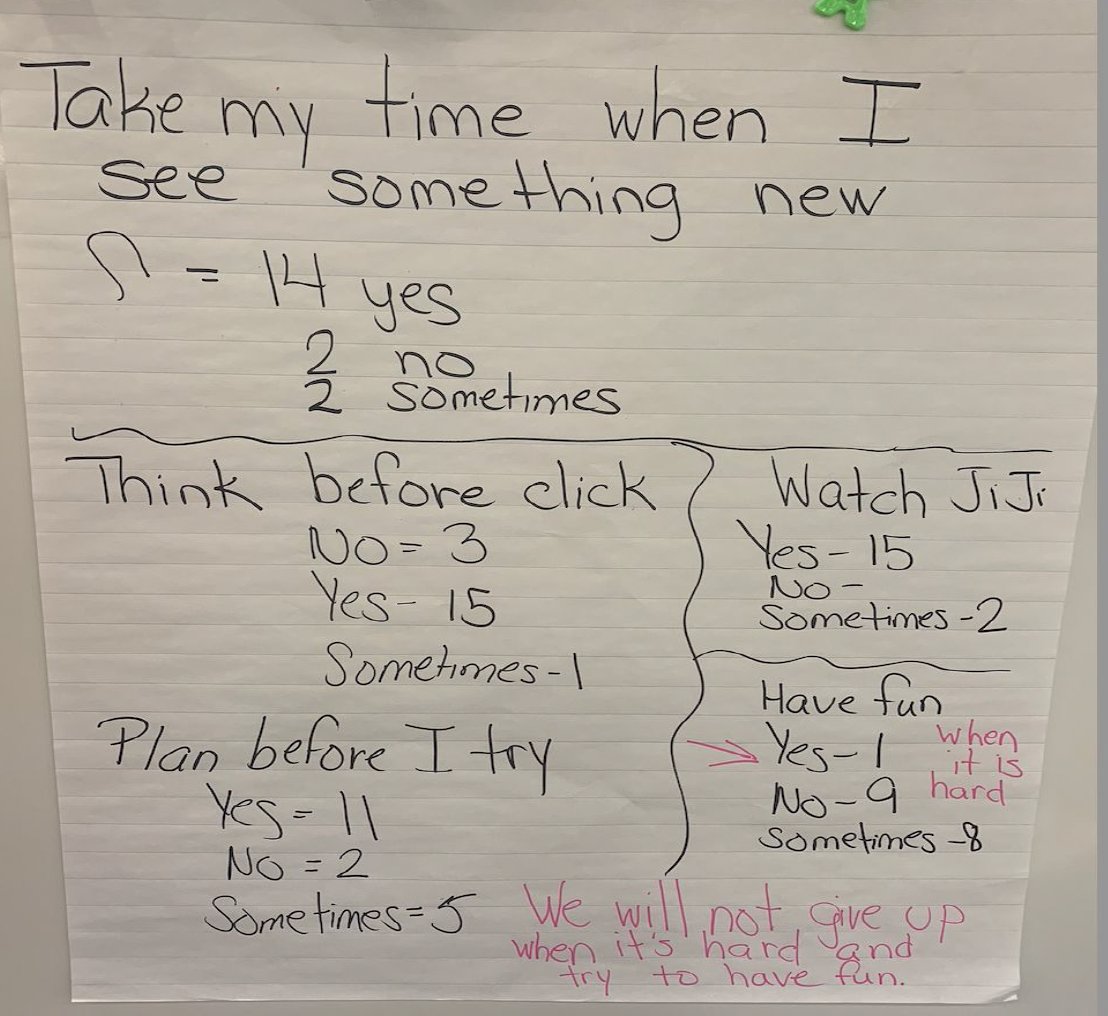 Take my time when I
see something new
= 14 yes
2 no
2 sometimes
Think before click
No = 3
Yes - 15
Sometimes - 1
Plan before I try
Yes = 11
No = 2
Sometimes = 5
Watch JiJi
Yes - 15
No -
Sometimes - 2
Have fun
Yes - 1 when
it is
hard
No - 9
Sometimes - 8
We will not give up
when it's hard and
try to have fun.